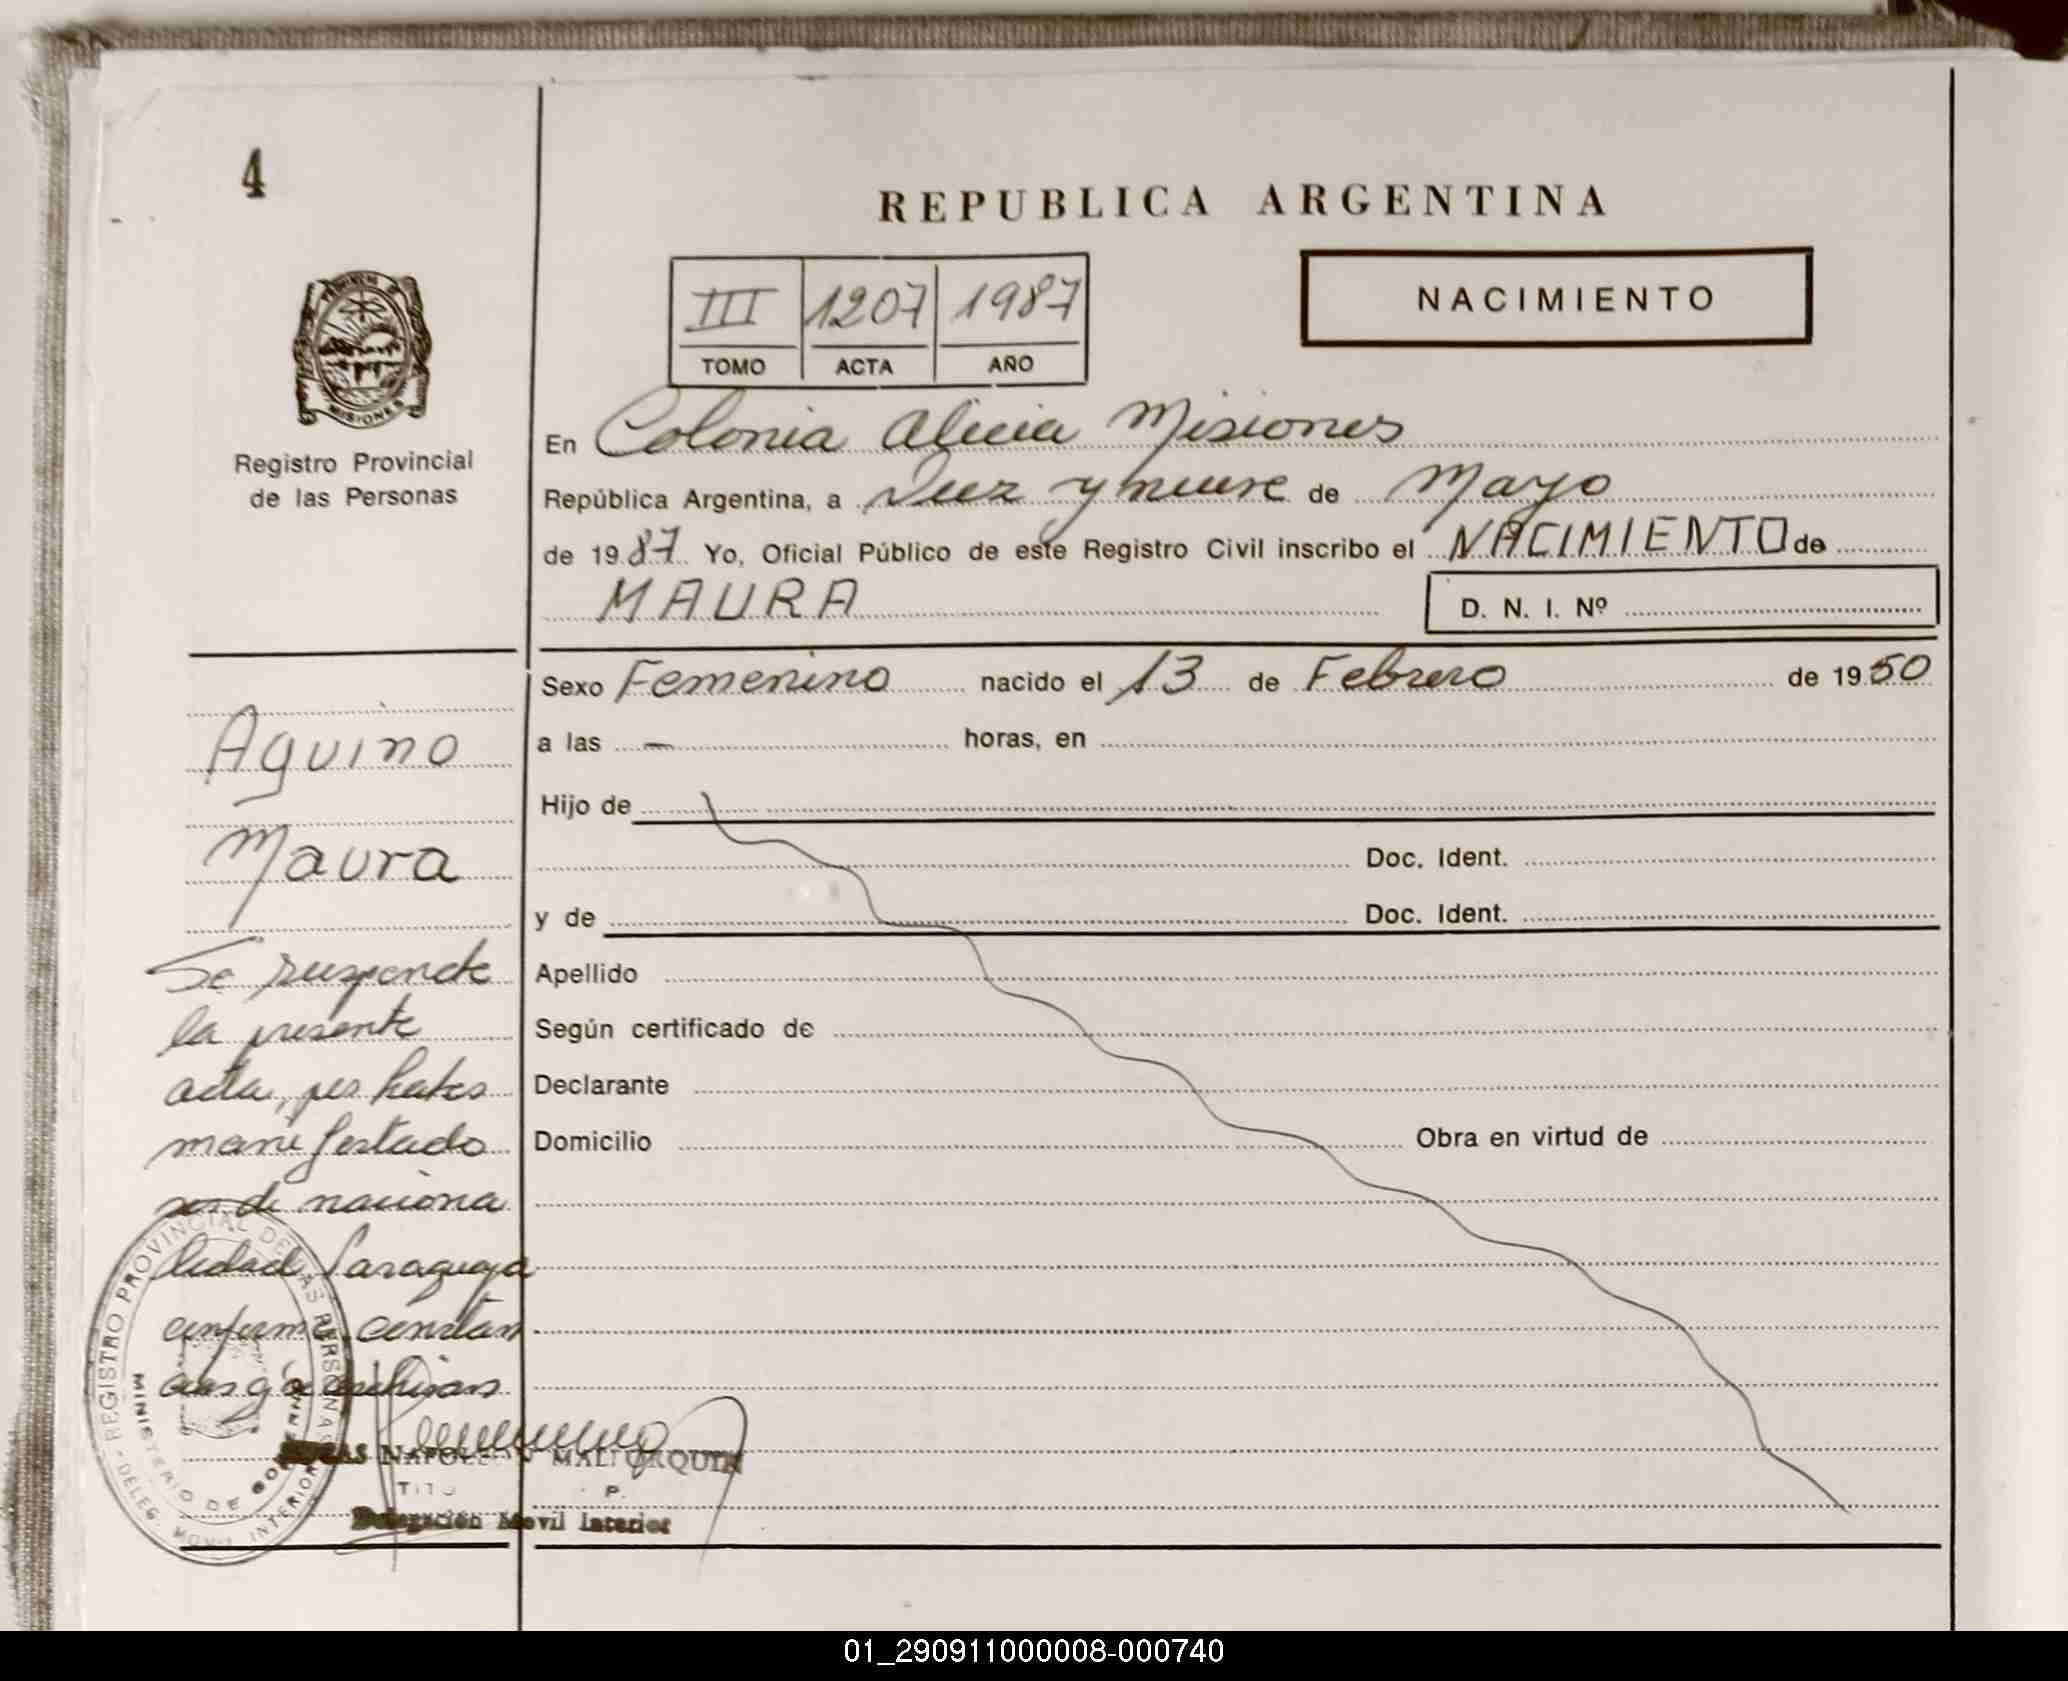 4
REPUBLICA ARGENTINA
NACIMIENTO
III 1207 1987
TOMO ACTA AÑO
PROVINCIA DE
MISIONES
Registro Provincial
de las Personas
En Colonia Alicia Misiones
República Argentina, a Diez y nueve de Mayo
de 1987 Yo, Oficial Público de este Registro Civil inscribo el NACIMIENTO de
MAURA
D. N. I. Nº
Sexo Femenino nacido el 13 de Febrero de 1950
a las - horas, en
Hijo de
Doc. Ident.
y de Doc. Ident.
Apellido
Según certificado de
Declarante
Domicilio Obra en virtud de
Aquino
Maura
Se suspende
la presente
acta, por haber
manifestado
ser de naciona
lidad Paraguaya
conforme constan
cias q se archivan
REGISTRO PROVINCIAL DE LAS PERSONAS
MINISTERIO DE GOBIERNO
DELEG. MOVIL INTERIOR
NAPOLEON MALLORQUIN
Delegación Movil Interior
01_290911000008-000740